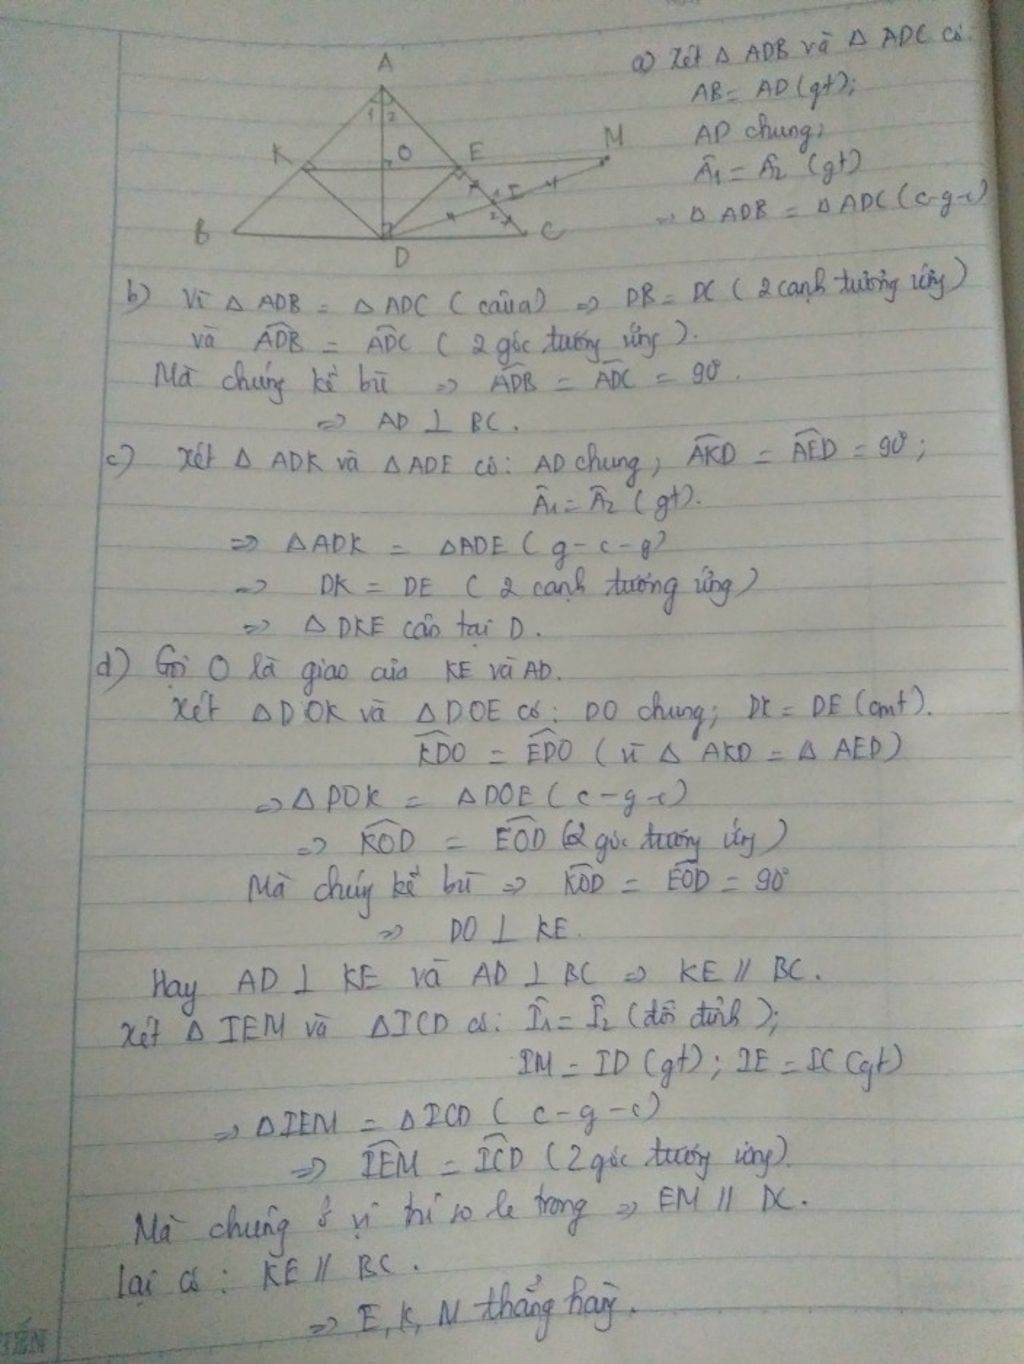 A
1 2
K
O
E
M
I
2
B
D
C
a) Xét Δ ADB và Δ ADC có:
AB = AD (gt);
AD chung;
Â1 = Â2 (gt)
⇒ Δ ADB = Δ ADC (c-g-c)
b) Vì Δ ADB = Δ ADC (câu a) ⇒ DB = DC (2 cạnh tương ứng)
và ADB = ADC (2 góc tương ứng).
Mà chúng kề bù ⇒ ADB = ADC = 90°.
⇒ AD ⊥ BC.
c) Xét Δ ADK và Δ ADE có: AD chung, AKD = AED = 90°;
Â1 = Â2 (gt).
⇒ ΔADK = ΔADE (g-c-g)
⇒ DK = DE (2 cạnh tương ứng)
⇒ Δ DKE cân tại D.
d) Gọi O là giao của KE và AD.
Xét ΔDOK và ΔDOE có: DO chung; DK = DE (cmt).
KDO = EDO (vì Δ AKD = Δ AED)
⇒ Δ DOK = ΔDOE (c-g-c)
⇒ KOD = EOD (2 góc tương ứng)
Mà chúng kề bù ⇒ KOD = EOD = 90°
⇒ DO ⊥ KE.
Hay AD ⊥ KE và AD ⊥ BC ⇒ KE // BC.
Xét Δ IEM và ΔICD có: Î1 = Î2 (đối đỉnh);
IM = ID (gt); IE = IC (gt)
⇒ ΔIEM = ΔICD (c-g-c)
⇒ IEM = ICD (2 góc tương ứng).
Mà chúng ở vị trí so le trong ⇒ EM // DC.
Lại có: KE // BC.
⇒ E, K, M thẳng hàng.
TIẾN